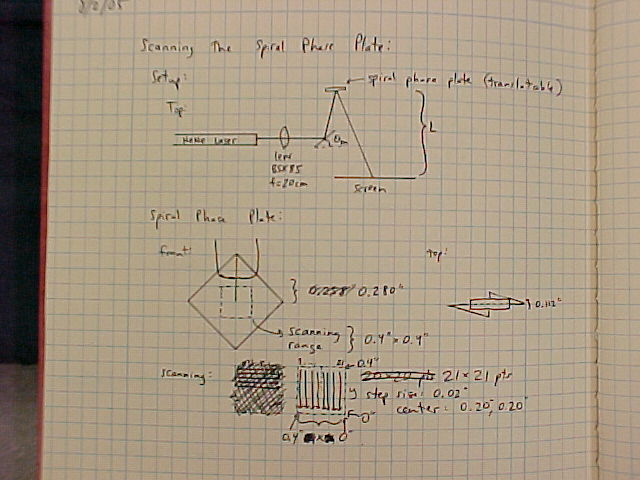 8/2/05
Scanning The Spiral Phase Plate:
Setup:
spiral phase plate (translatable)
Top:
HeNe Laser
L
lens
f=20cm
screen
Spiral Phase Plate:
front:
top:
0.280"
0.112"
scanning range
0.4" x 0.4"
scanning:
1 ... 21
0.4"
20x20 pts 21x21 pts
y step size: 0.02"
center: 0.20", 0.20"
0"
0.4" x 0"